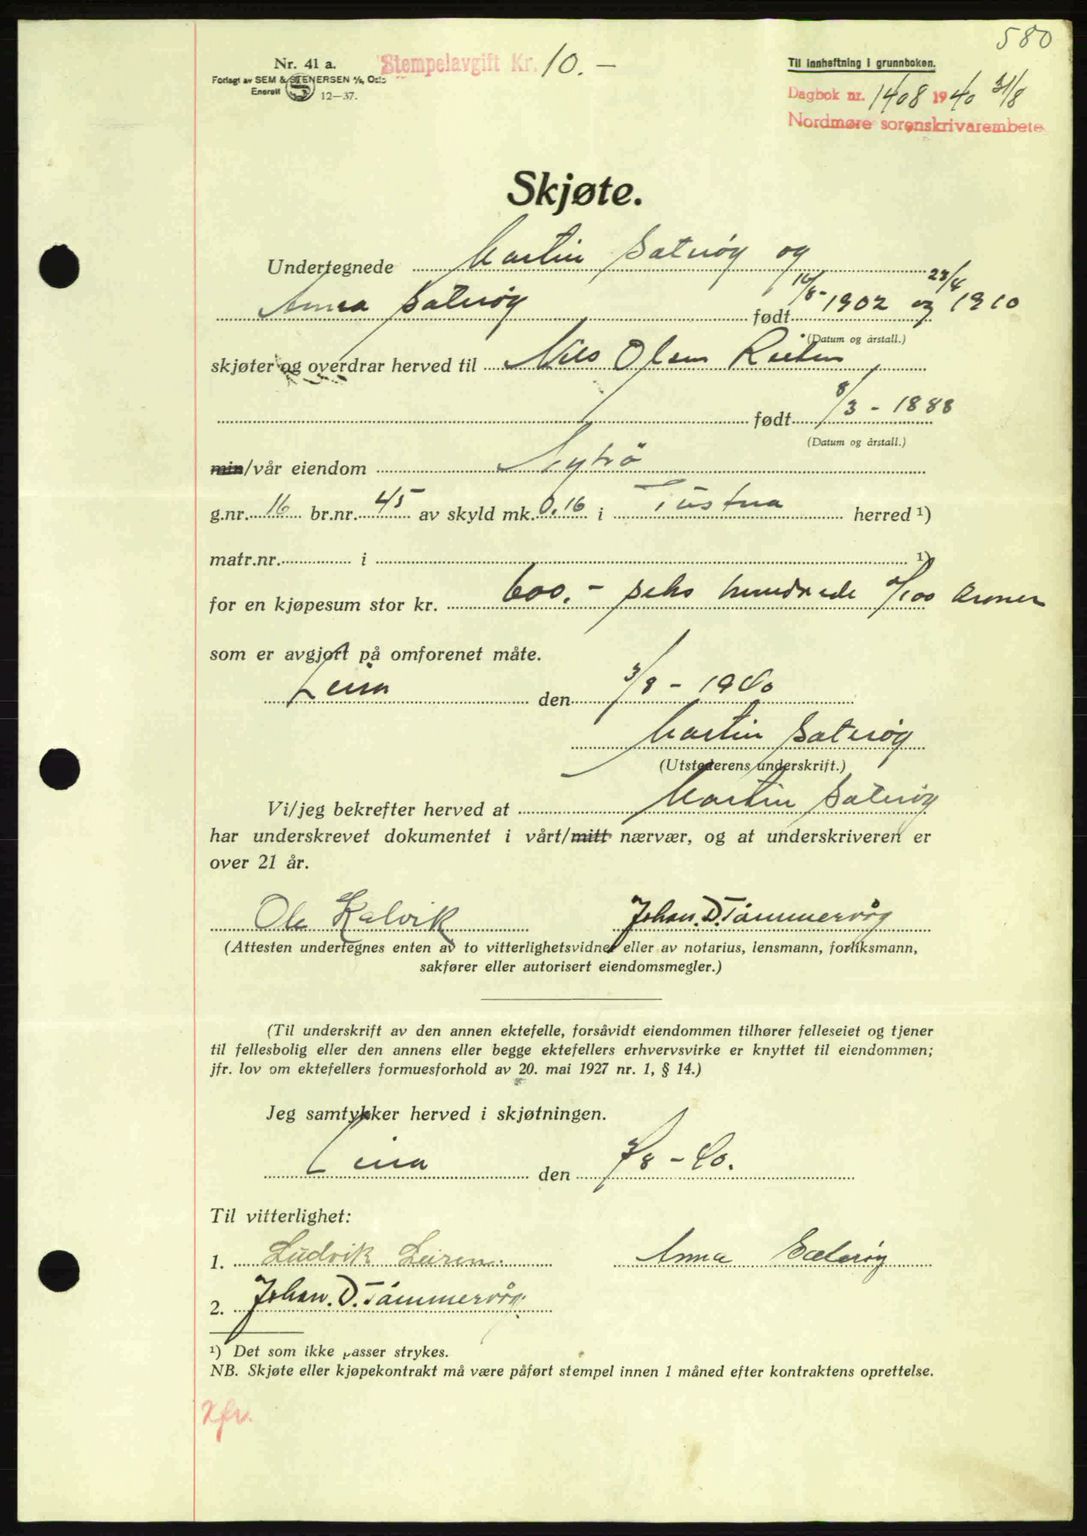 580
Nr. 41 a.
Forlagt av SEM & STENERSEN A/S, Oslo
Enerett 12—37.
Stempelavgift Kr. 10.-
Til innheftning i grunnboken.
Dagbok nr. 1408 1940 31/8
Nordmøre sorenskrivarembete
Skjøte.
Undertegnede Martin Sætrøy og
Anna Sætrøy født 16/8-1902 og 23/4 1910
(Datum og årstall.)
skjøter og overdrar herved til Nils Olsen Reiten
født 8/3-1888
(Datum og årstall.)
min/vår eiendom Nytrø
g.nr. 16 br.nr. 45 av skyld mk. 0.16 i Tustna herred ¹)
matr.nr. i ¹)
for en kjøpesum stor kr. 600.- seks hundrede 0/100 kroner
som er avgjort på omforenet måte.
Leira den 3/8-1940
Martin Sætrøy
(Utstederens underskrift.)
Vi/jeg bekrefter herved at Martin Sætrøy
har underskrevet dokumentet i vårt/mitt nærvær, og at underskriveren er
over 21 år.
Ole Kalvik Johan. D. Tømmervåg
(Attesten undertegnes enten av to vitterlighetsvidner eller av notarius, lensmann, forliksmann,
sakfører eller autorisert eiendomsmegler.)
(Til underskrift av den annen ektefelle, forsåvidt eiendommen tilhører felleseiet og tjener
til fellesbolig eller den annens eller begge ektefellers erhvervsvirke er knyttet til eiendommen;
jfr. lov om ektefellers formuesforhold av 20. mai 1927 nr. 1, § 14.)
Jeg samtykker herved i skjøtningen.
Leira den 3/8-40.
Til vitterlighet:
1. Ludvik Leiren. Anna Sætrøy
2. Johan. D. Tømmervåg.
¹) Det som ikke passer strykes.
NB. Skjøte eller kjøpekontrakt må være påført stempel innen 1 måned efter kontraktens oprettelse.